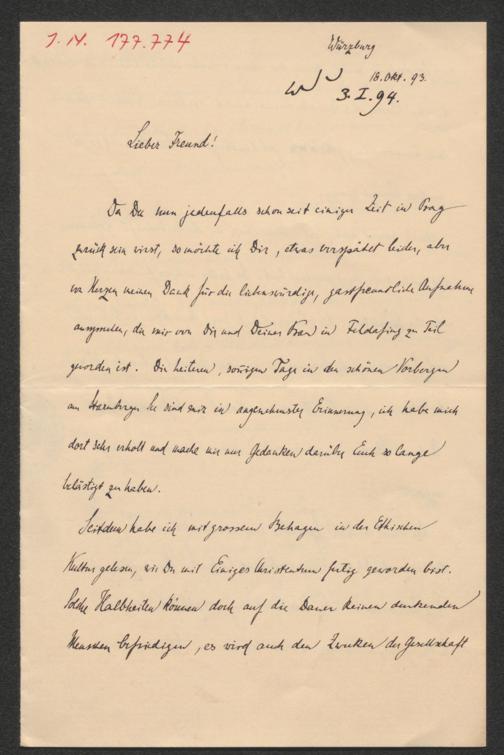 J. N. 177.774
Würzburg
18. Okt. 93.
3. I. 94.
Lieber Freund!
Da Du nun jedenfalls schon seit einiger Zeit in Prag
zurück sein wirst, so möchte ich Dir, etwas verspätet leider, aber
von Herzen meinen Dank für die liebenswürdige, gastfreundliche Aufnahme
aussprechen, die mir von Dir und Deiner Frau in Feldafing zu Teil
geworden ist. Die heiteren, sonnigen Tage in den schönen Vorbergen
am Starnberger See sind mir in angenehmster Erinnerung, ich habe mich
dort sehr erholt und mache mir nur Gedanken darüber Euch so lange
belästigt zu haben.
Seitdem habe ich mit grossem Behagen in der Ethischen
Kultur gelesen, wie Du mit Einiges Christentum fertig geworden bist.
Solche Halbheiten können doch auf die Dauer keinen denkenden
Menschen befriedigen, es wird auch den Zwecken der Gesellschaft